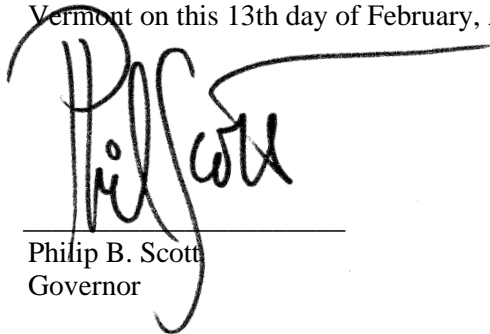 Vermont on this 13th day of February,
Phil Scott
Philip B. Scott
Governor